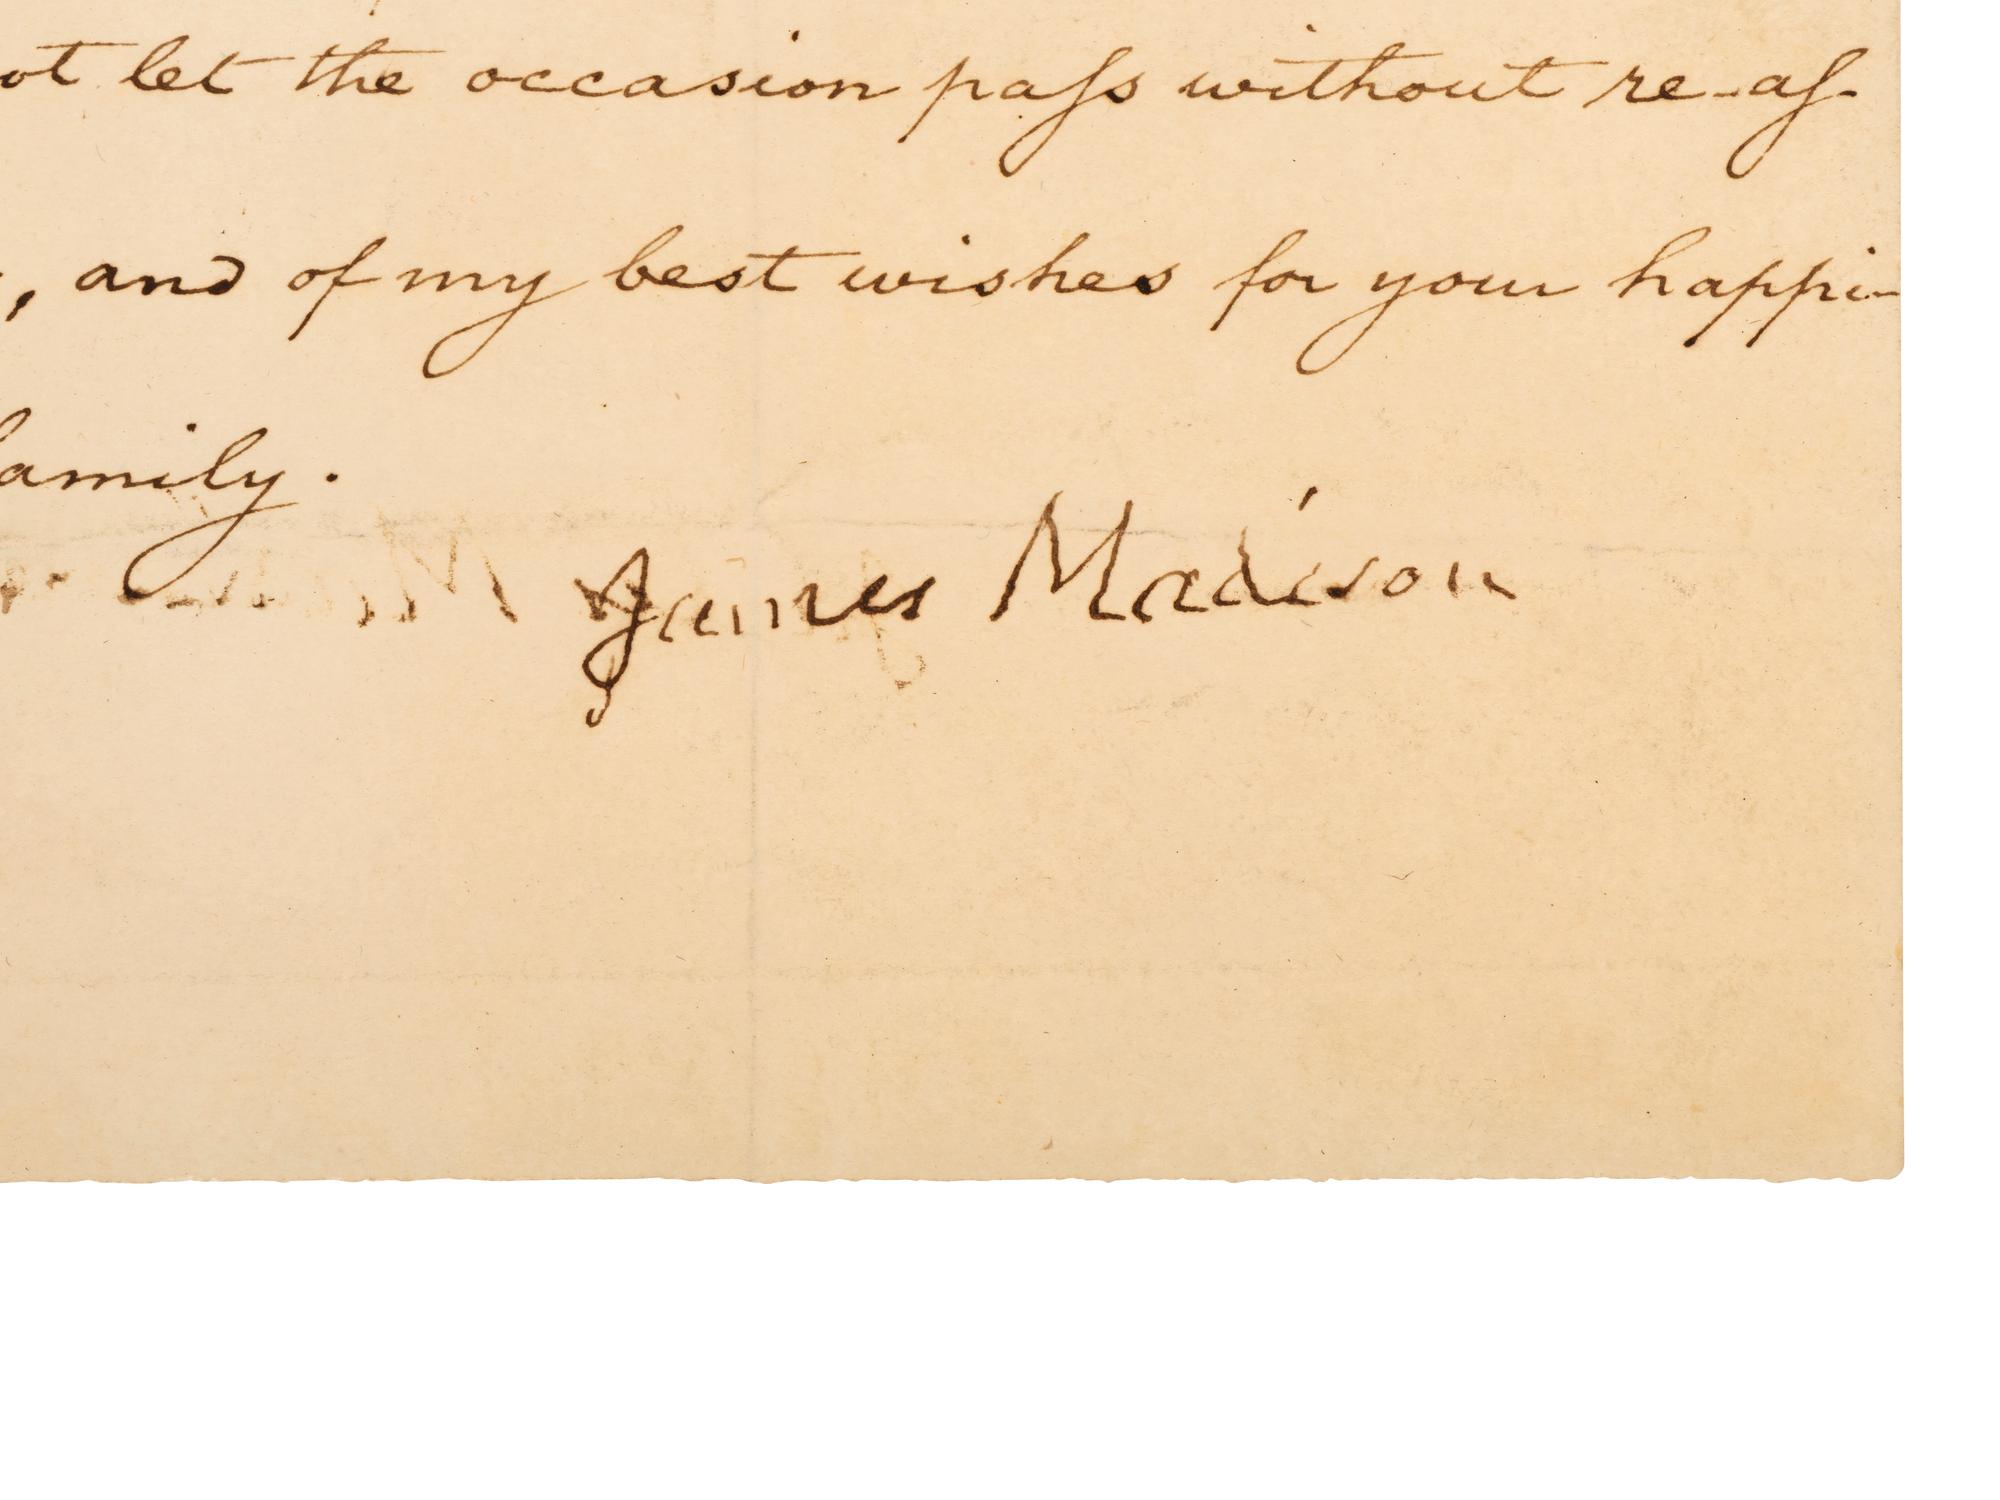 ot let the occasion paſs without re-aſ-
, and of my best wishes for your happi-
family.
James Madison